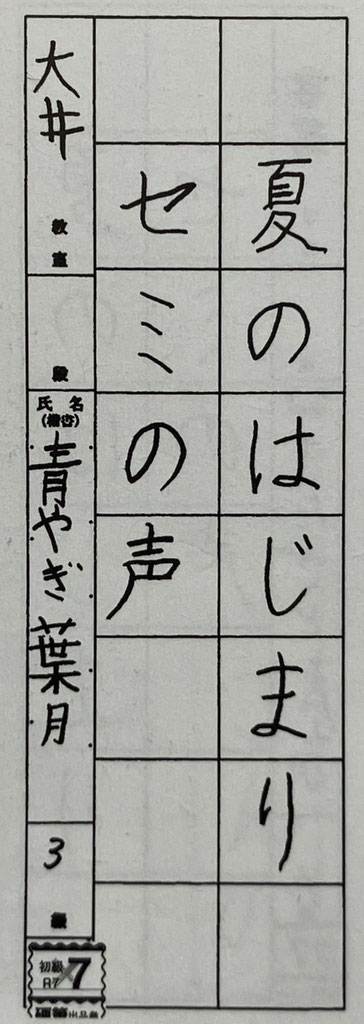 夏のはじまり
セミの声
大井 教室
段
氏名
(楷書)
青やぎ葉月
3 級
初級
R7 7
出品券